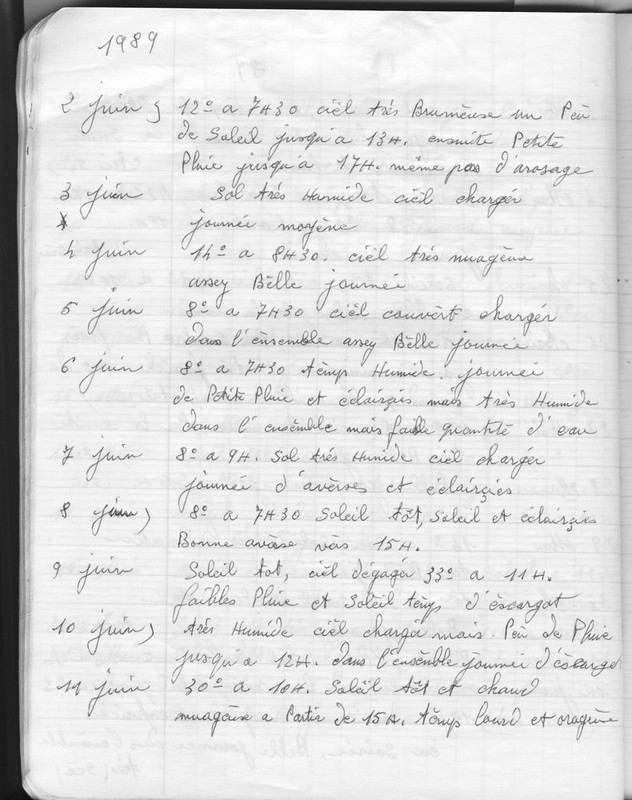 1989
2 juin, 12º a 7H30 cièl très Brumèuse un Peu
de Soleil jusqu'a 13H. ensuite Petite
Pluie jusqu'a 17H. même pas d'arosage
3 juin Sol très Humide cièl chargér
journée moyène
4 juin 14º a 8H30. cièl très nuagèux
assey Bèlle journée
5 juin 8º a 7H30 cièl couvèrt chargér
dans l'ènsemble assey Bèlle journée
6 juin 8º a 7H30 tèmps Humide. journeé
de Petite Pluie et éclairçies mais très Humide
dans l'ensèmble mais faible quantité d'eau
7 juin 8º a 9H. Sol très Humide cièl chargér
journeé d'avèrses et éclairçies
8 juin, 8º a 7H30 Soleil tôt, Soleil et éclairçies
Bonne avèrse vèrs 15H.
9 juin Soleil tot, cièl dégagér 33º a 11H.
faibles Pluie et Soleil tèmp d'èscargot
10 juin, très Humide cièl chargé mais Peu de Pluie
jusqu'a 12H. dans l'ensèmble journeé d'èscargot
11 juin 30º a 10H. Solèil tôt et chaud
nuagèuse a Partir de 15H. tèmps lourd et oragèux